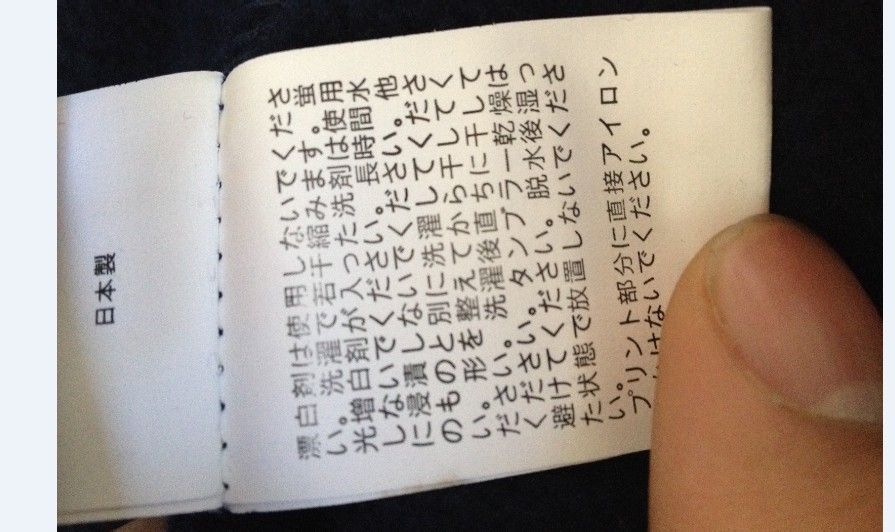 日本製
漂白剤は使用しないでくださ
い。洗濯で若干縮みます。蛍
光増白剤が入った洗剤は使用
しないでください。長時間水
に浸漬しないでください。他
のものと別に洗濯してくださ
い。形を整えてから干してく
ださい。洗濯後直ちに干して
ください。タンブラー乾燥は
避けてください。脱水後湿っ
た状態で放置しないでくださ
い。
プリント部分に直接アイロン
けないでください。